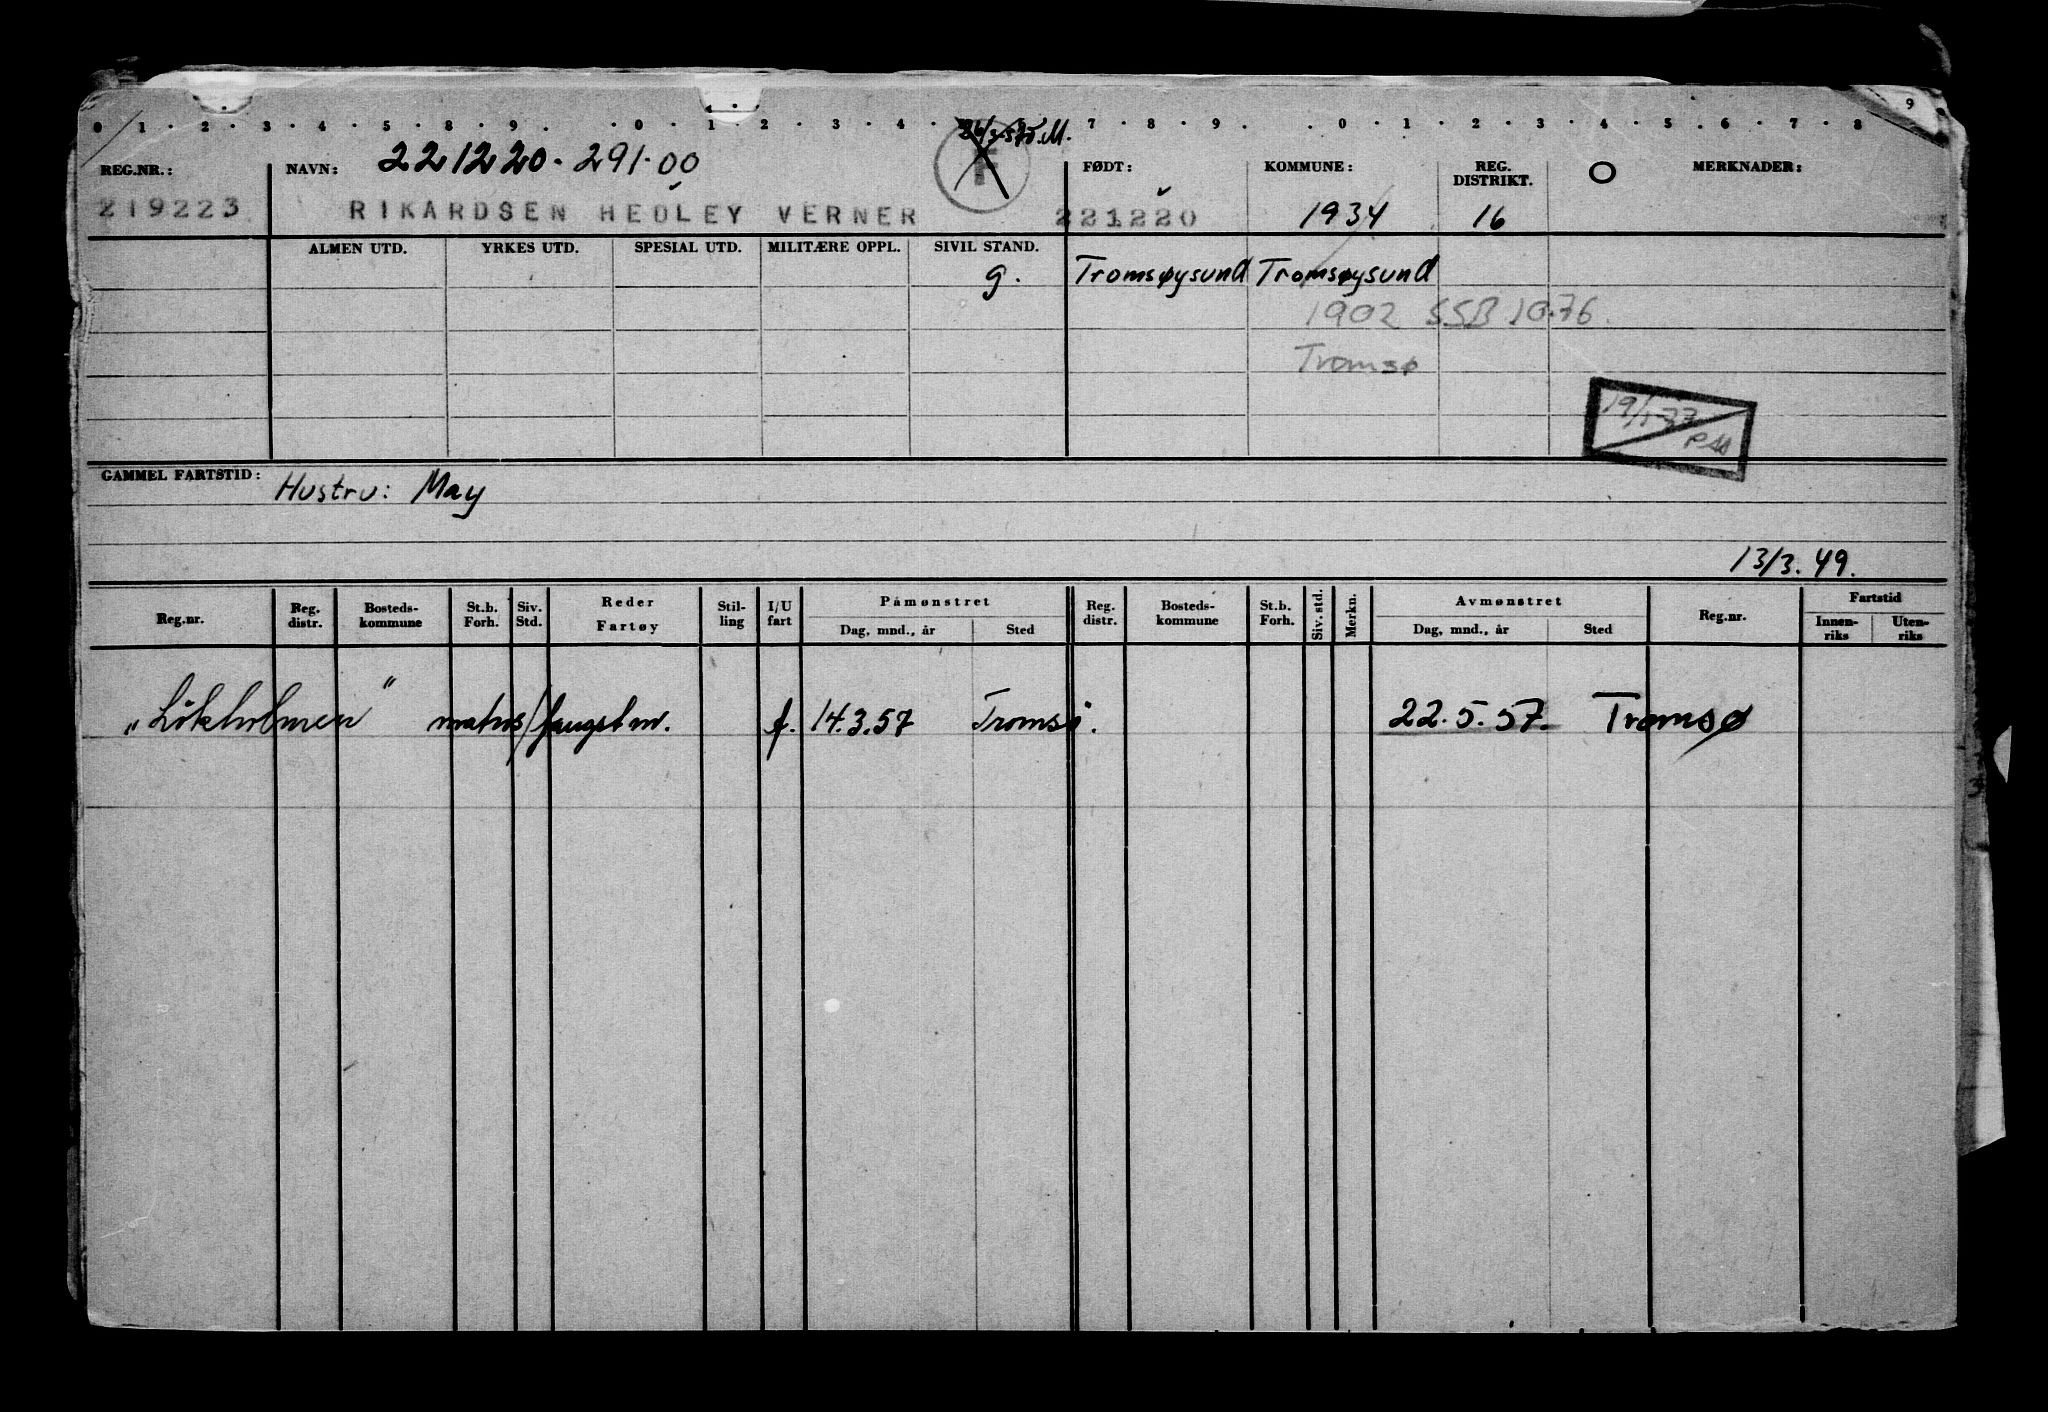 0 1 . 2 . 3 . 4 . 5 . 8 . 9 . . 0 . 1 . 2 . 3 . 4 . 7 . 8 . 9 . . 0 . 1 . 2 . 3 . 4 . 5 . 6 . 7 . 8 9
26/3-57 T.M.
F
REG.NR.: NAVN: 221220-291.00 FØDT: KOMMUNE: REG. DISTRIKT. MERKNADER:
219223 RIKARDSEN HEDLEY VERNER 221220 1934 16
ALMEN UTD. YRKES UTD. SPESIAL UTD. MILITÆRE OPPL. SIVIL STAND.
g. Tromsøysund Tromsøysund
1902 SSB 10.76.
Tromsø
19/1-77
GAMMEL FARTSTID: Hustru: May
13/3.49.
Reg.nr. Reg. distr. Bosteds-kommune St.b. Forh. Siv. Std. Reder Fartøy Stil-ling I/U fart Påmønstret Dag, mnd., år Sted Reg. distr. Bosteds-kommune St.b. Forh. Siv. std. Merkn. Avmønstret Dag, mnd., år Sted Reg.nr. Fartstid Innen-riks Uten-riks
„Lökholmen" matros/fangstm. f. 14.3.57 Tromsö. 22.5.57. Tromsø